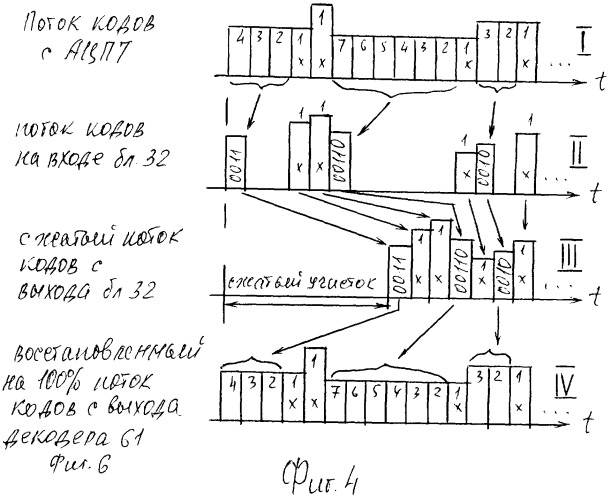 Поток кодов
с АЦП7
4 3 2 1 1 7 6 5 4 3 2 1 3 2 1
х х х х
I
... t
поток кодов
на входе бл. 32
0011 1 1 00110 1 0010 1
х х х х
II
... t
сжатый поток
кодов с
выхода бл 32
сжатый участок
0011 1 1 00110 1 0010 1
х х х х
III
... t
восстановленный
на 100% поток
кодов с выхода
декодера 61
Фиг. 6
4 3 2 1 1 7 6 5 4 3 2 1 3 2 1
х х х х
IV
... t
Фиг. 4